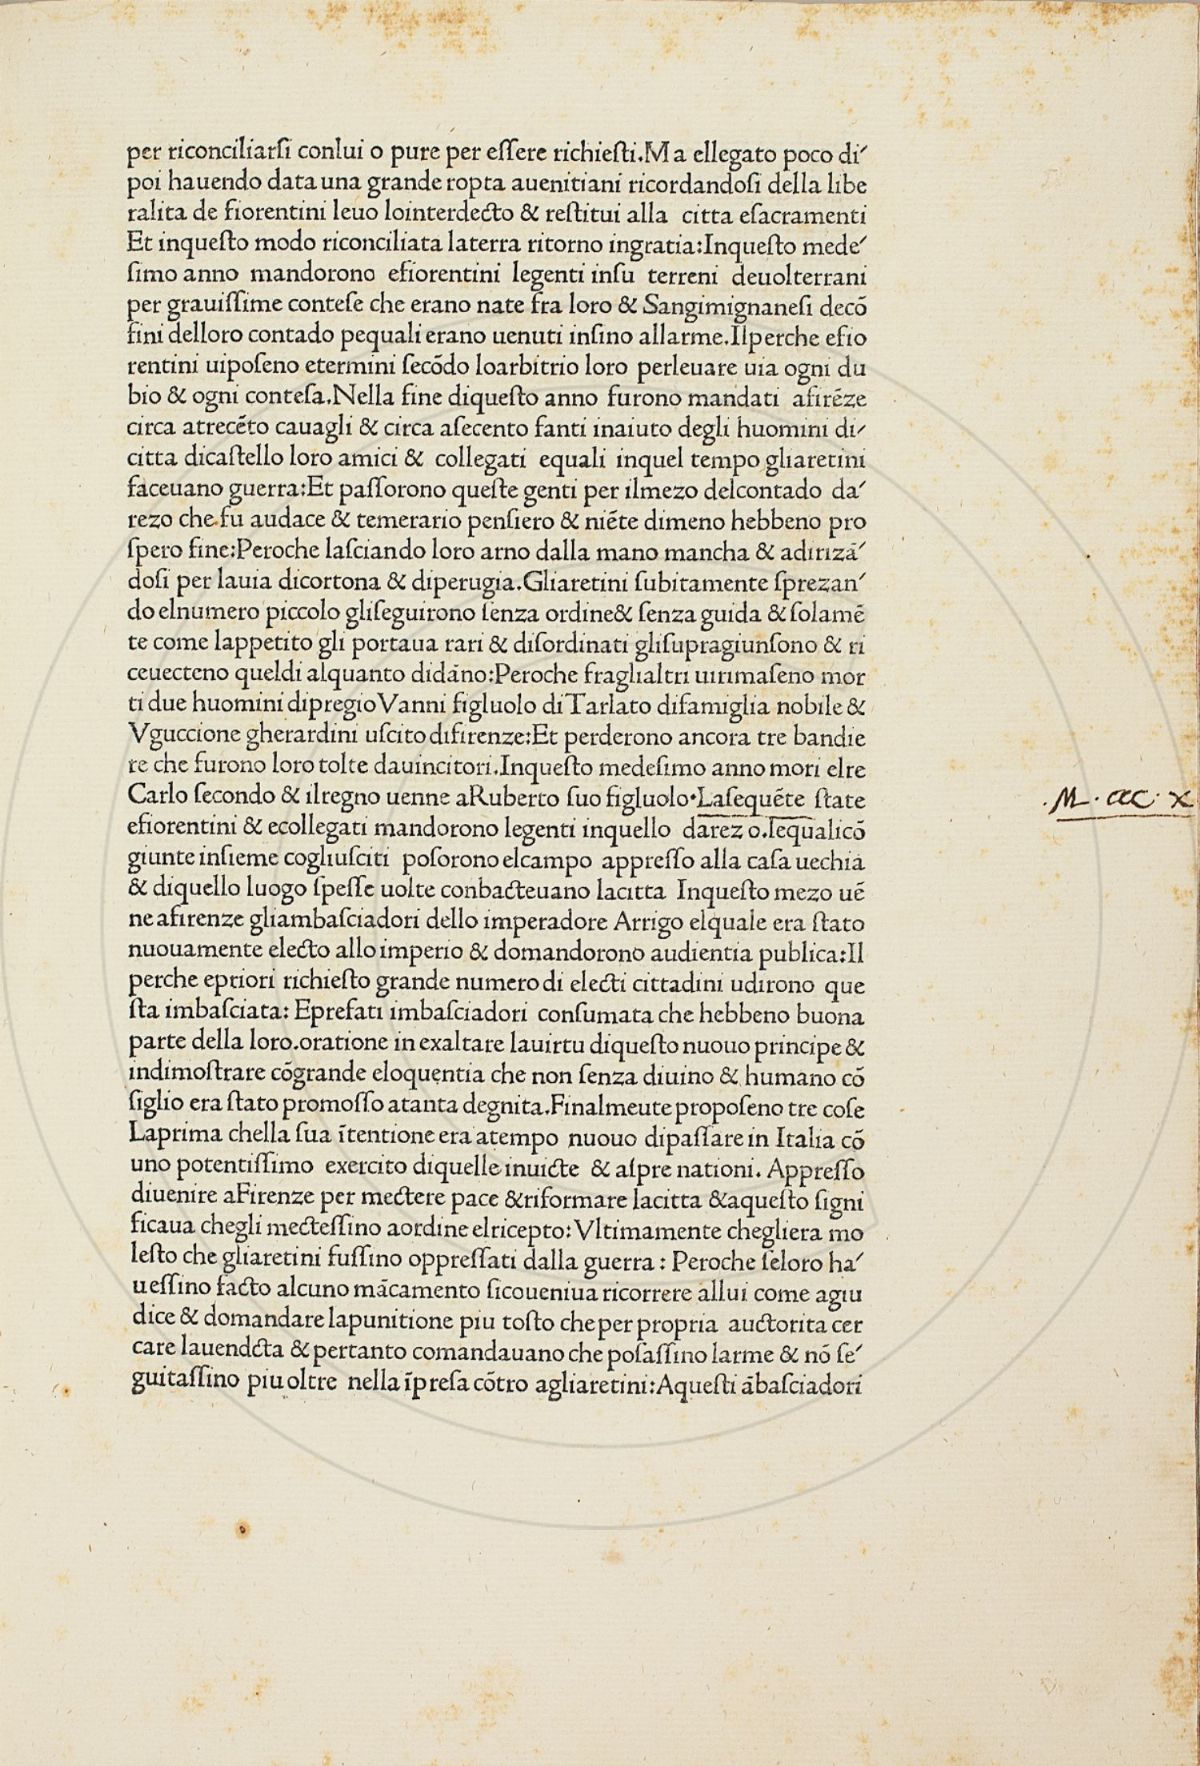 per riconciliarſi conlui o pure per eſſere richieſti.Ma ellegato poco di⸗
poi hauendo data una grande ropta auenitiani ricordandoſi della libe
ralita de fiorentini leuo lointerdecto & reſtitui alla citta eſacramenti
Et inqueſto modo riconciliata laterra ritorno ingratia:Inqueſto mede⸗
ſimo anno mandorono efiorentini legenti inſu terreni deuolterrani
per grauiſſime conteſe che erano nate fra loro & Sangimignaneſi decō
fini delloro contado pequali erano uenuti inſino allarme.Ilperche efio
rentini uipoſeno etermini ſecōdo loarbitrio loro perleuare uia ogni du
bio & ogni conteſa.Nella fine diqueſto anno furono mandati afirēze
circa atrecēto cauagli & circa aſecento fanti inaiuto degli huomini di⸗
citta dicaſtello loro amici & collegati equali inquel tempo gliaretini
faceuano guerra:Et paſſorono queſte genti per ilmezo delcontado da⸗
rezo che fu audace & temerario penſiero & niēte dimeno hebbeno pro
ſpero fine:Peroche laſciando loro arno dalla mano mancha & adirizā⸗
doſi per lauia dicortona & diperugia.Gliaretini ſubitamente ſprezan⸗
do elnumero piccolo gliſeguirono ſenza ordine& ſenza guida & ſolamē
te come lappetito gli portaua rari & diſordinati gliſupragiunſono & ri
ceuecteno queldi alquanto didāno:Peroche fraglialtri uirimaſeno mor
ti due huomini dipregio Vanni figluolo di Tarlato difamiglia nobile &
Vguccione gherardini uſcito difirenze:Et perderono ancora tre bandie
re che furono loro tolte dauincitori.Inqueſto medeſimo anno mori elre
Carlo ſecondo & ilregno uenne aRuberto ſuo figluolo·Laſequēte ſtate
efiorentini & ecollegati mandorono legenti inquello darezo.lequalicō
giunte inſieme cogliuſciti poſorono elcampo appreſſo alla caſa uechia
& diquello luogo ſpeſſe uolte conbacteuano lacitta Inqueſto mezo uē
ne afirenze gliambaſciadori dello imperadore Arrigo elquale era ſtato
nuouamente electo allo imperio & domandorono audientia publica:Il
perche epriori richieſto grande numero di electi cittadini udirono que
ſta imbaſciata: Eprefati imbaſciadori conſumata che hebbeno buona
parte della loro.oratione in exaltare lauirtu diqueſto nuouo principe &
indimoſtrare cōgrande eloquentia che non ſenza diuino & humano cō
ſiglio era ſtato promoſſo atanta degnita.Finalmeute propoſeno tre coſe
Laprima chella ſua ītentione era atempo nuouo dipaſſare in Italia cō
uno potentiſſimo exercito diquelle inuicte & aſpre nationi. Appreſſo
diuenire aFirenze per mectere pace &riformare lacitta &aqueſto ſigni
ficaua chegli mecteſſino aordine elricepto:Vltimamente chegliera mo
leſto che gliaretini fuſſino oppreſſati dalla guerra : Peroche ſeloro ha⸗
ueſſino facto alcuno mācamento ſicoueniua ricorrere allui come agiu
dice & domandare lapunitione piu toſto che per propria auctorita cer
care lauendcta & pertanto comandauano che poſaſſino larme & nō ſe⸗
guitaſſino piu oltre nella īpreſa cōtro agliaretini:Aqueſti ābaſciadori
.M.ccc.x